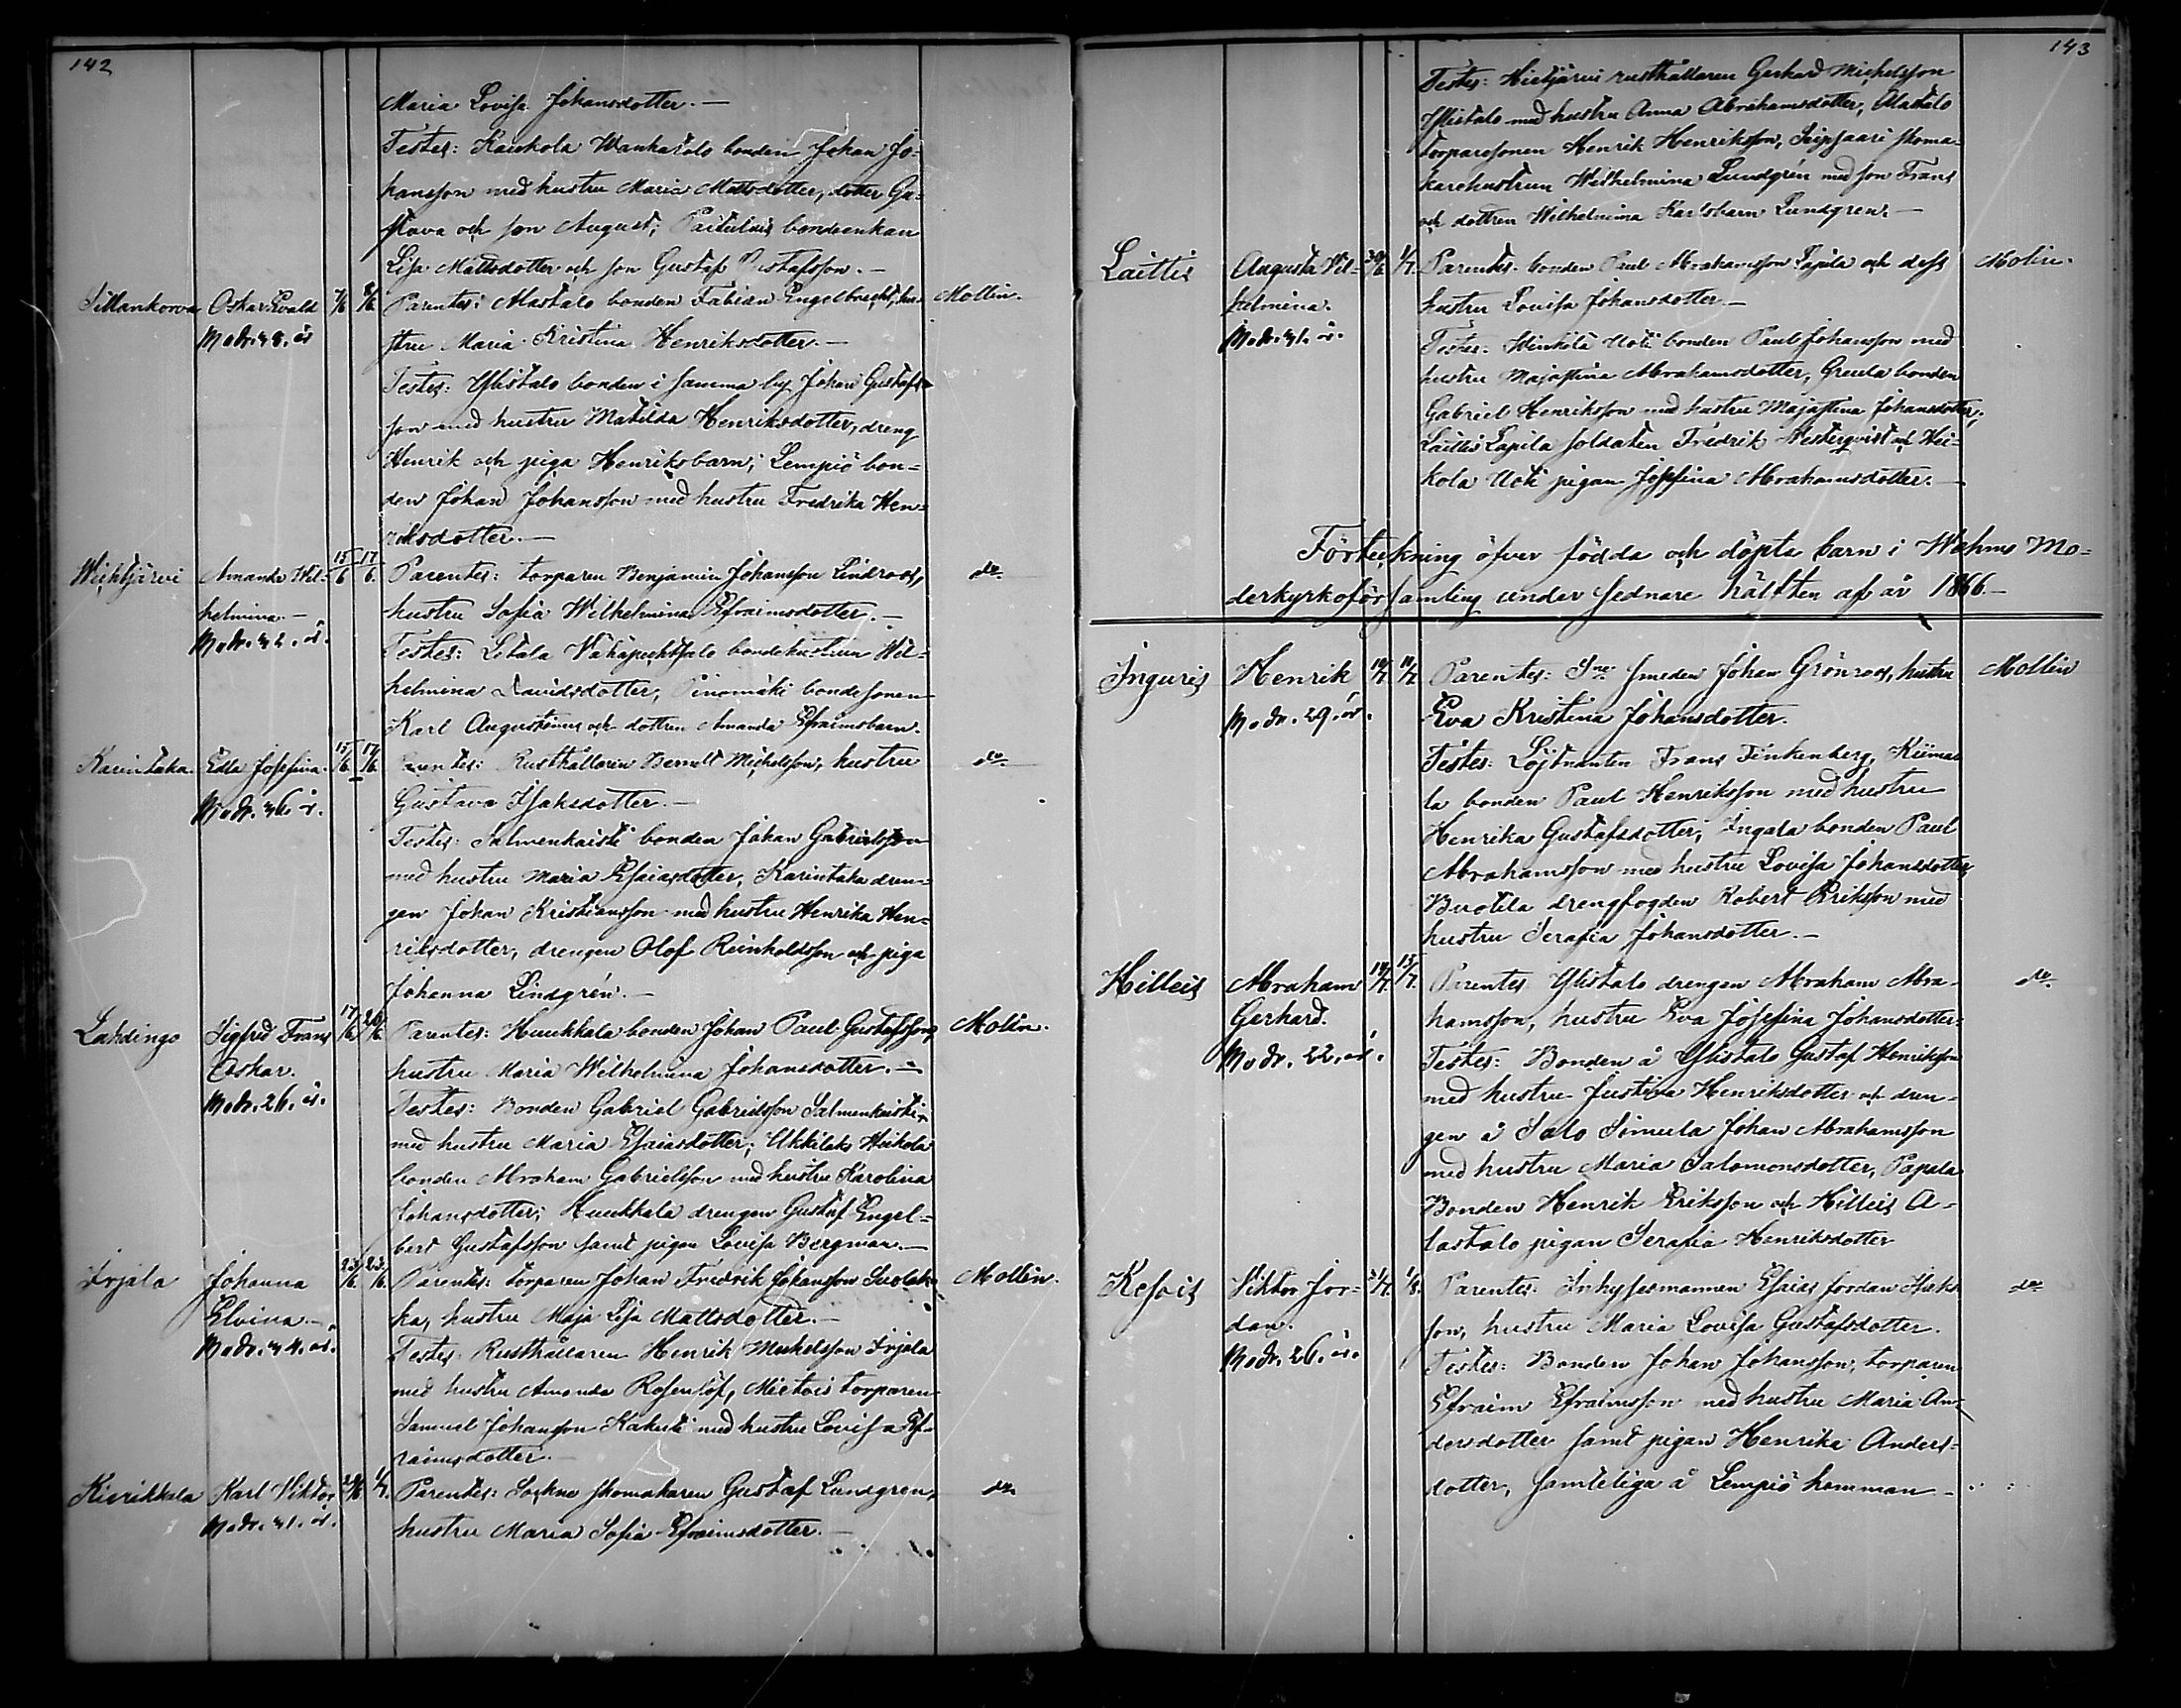 142
Maria Lovisa Johansdotter.—
Testes: Kaukola Wanhatalo bonden Johan Jo=
hansson med hustru Maria Mattsdotter, dotter Gu=
stava och son August; bondeenkan
Lisa Mattsdotter och son Gustaf Gustafsson.—
Sillankorva Oskar Evald 7/6 8/6 Parentes: Alastalo bonden Fabian Engelbrecht, hu=
Mollin.
Modr. 38. år
stru Maria Kristina Henriksdotter.—
Testes: Ylistalo bonden i samma by Johan Gustafs=
son med hustru Matilda Henriksdotter, dreng
Henrik och piga Henriksbarn; Lempiö bon=
den Johan Johansson med hustru Fredrika Hen=
riksdotter.—
Wichtjärvi Amanda Wil= 15/6 17/6. Parentes: torparen Benjamin Johansson Lindroos,
do.
helmina.— hustru Sofia Wilhelmina Efraimsdotter.—
Modr. 32. år.
Testes: Letala Vähäpechtsalo bondehustrun Wil=
helmina Davidsdotter, Pinomäki bondesonen
Karl Augustinus och dottren Amanda Efraimsbarn.
Karintaka. Edla Josefina. 15/6 17/6. Parentes: Rusthållaren Berndt Michelsson, hustru
do.
Modr. 36. år.
Gustava Isaksdotter.—
Testes: Salmenkaisti bonden Johan Gabrielsson
med hustru Maria Esaiasdotter, Karintaka dren=
gen Johan Kristiansson med hustru Henrika Hen=
riksdotter, drengen Olof Reinholdsson och piga
Johanna Lindgrén.—
Lahdingo Sigfrid Frans 17/6 20/6 Parentes: Huukkala bonden Johan Paul Gustafsson,
Molin.
Oskar. hustru Maria Wilhelmina Johansdotter.—
Modr. 26. år.
Testes: Bonden Gabriel Gabrielsson Salmenkaisti
med hustru Maria Esaiasdotter; Ukkilaks Heikola
bonden Abraham Gabrielsson med hustru Karolina
Johansdotter; Huukkala drengen Gustaf Engel=
bert Gustafsson samt pigan Lovisa Bergman.—
Irjala Johanna 23/6 23/6. Parentes: torparen Johan Fredrik Johansson
Mollin.
Elvina.— hustru Maja Lisa Mattsdotter.—
Modr. 34. år.
Testes: Rusthållaren Henrik Michelsson Irjala
med hustru Amanda Rosenlöf, Mietois torparen
Samuel Johansson Kakuli med hustru Lovisa Ef=
raimsdotter.—
Kierikkala Karl Viktor 29/6 1/7. Parentes: Sockne skomakaren Gustaf Lundgren,
do.
Modr. 31. år.
hustru Maria Sofia Efraimsdotter.—
143
Testes: Hietjärvi rusthållaren Gerhard Michelsson
Ylistalo med hustru Anna Abrahamsdotter, Alastalo
torparesonen Henrik Henriksson, Seipsaari skoma=
karehustrun Wilhelmina Lundgrén med son Frans
och dottren Wilhelmina Karlsbarn Lundgren.—
Laittis Augusta Wil= 30/6 1/7. Parentes: bonden Paul Abrahamsson Lapila och dess
Molin.
helmina. hustru Lovisa Johansdotter.—
Modr. 31. år.
Testes: Uoti bonden Paul Johansson med
hustru Majastina Abrahamsdotter, Greula bonden
Gabriel Henriksson med hustru Majastina Johansdotter,
Laittis Lapila soldaten Fredrik Westerqvist och Hei=
kola Uoti pigan Josefina Abrahamsdotter.—
Förteckning öfver födda och döpta barn i Wehmo Mo=
derkyrkoförsamling under sednare hälften af år 1866.—
Inguris Henrik 10/7 11/7. Parentes: Sne smeden Johan Grönroos, hustru
Mollin
Modr. 29. år.
Eva Kristina Johansdotter.
Testes: Löjtnanten Frans Finkenberg, Kiima=
la bonden Paul Henriksson med hustru
Henrika Gustafsdotter, Ingala bonden Paul
Abrahamsson med hustru Lovisa Johansdotter,
Buotila drengfogden Robert Eriksson med
hustru Serafia Johansdotter.—
Hilleis Abraham 14/7 15/7. Parentes: Ylistalo drengen Abraham Abra=
do.
Gerhard. hamsson, hustru Eva Josefina Johansdotter.
Modr. 22. år.
Testes: Bonden å Ylistalo Gustaf Henriksson
med hustru Justina Henriksdotter och dren=
gen å Salo Simula Johan Abrahamsson
med hustru Maria Salomonsdotter, Papala
Bonden Henrik Eriksson och Hilleis A=
lastalo pigan Serafia Henriksdotter
Kesois Viktor Jor= 31/7 1/8. Parentes: Inhysesmannen Esaias Jordan Isaks=
do.
dan. son, hustru Maria Lovisa Gustafsdotter.
Modr. 26. år.
Testes: Bonden Johan Johansson, torparen
Efraim Efraimsson med hustru Maria An=
dersdotter samt pigan Henrika Anders=
dotter, samteliga å Lempiö hemman—